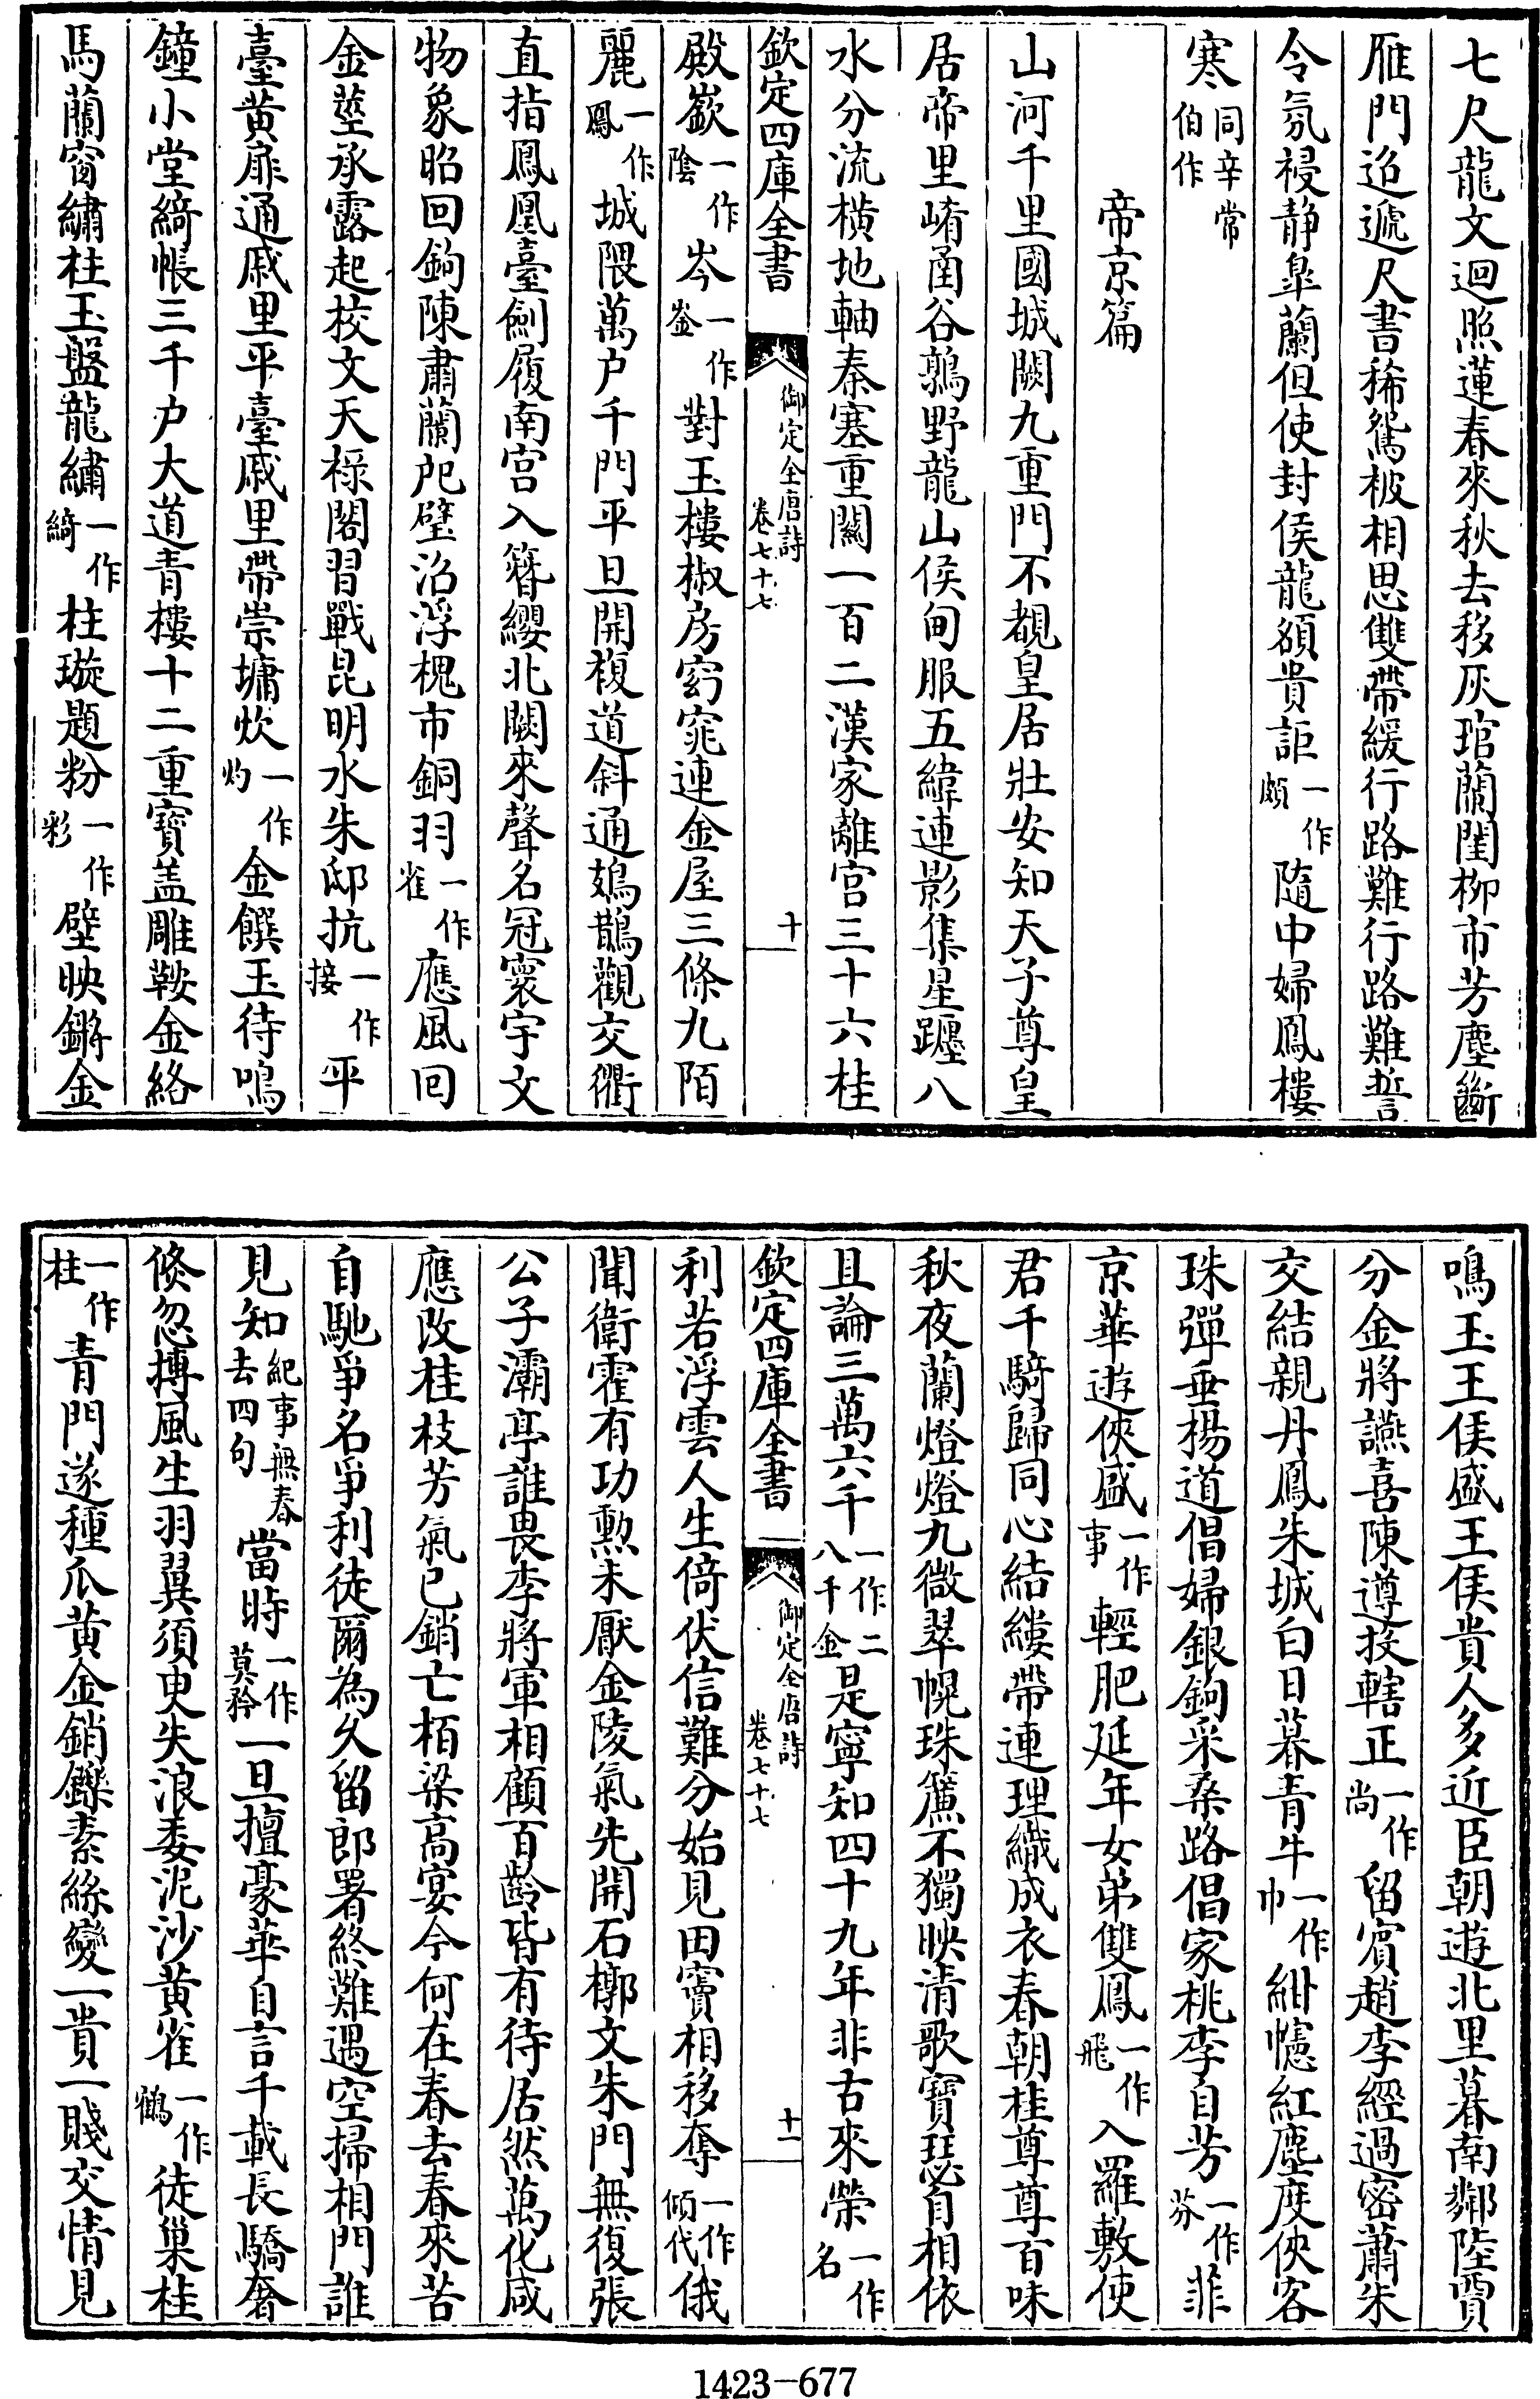 七尺龍文迴照蓮春來秋去移灰琯蘭閨柳市芳塵斷
雁門迢遞尺書稀鴛被相思雙帶緩行路難行路難誓
令氛祲静臯蘭但使封侯龍頟貴詎一作頗隨中婦鳳樓
寒同辛常伯作
帝京篇
山河千里國城闕九重門不覩皇居壯安知天子尊皇
居帝里崤函谷鶉野龍山侯甸服五緯連影集星躔八
水分流横地軸秦塞重關一百二漢家離宫三十六桂
欽定四庫全書 御定全唐詩 卷七十七 十
殿嶔一作陰岑一作崟對玉樓椒房窈窕連金屋三條九陌
麗一作鳳城隈萬户千門平旦開複道斜通鳷鵲觀交衢
直指鳳凰臺劍履南宫入簪纓北闕來聲名冠寰宇文
物象昭回鉤陳肅蘭戺璧沼浮槐市銅羽一作雀應風回
金莖承露起校文天禄閣習戰昆明水朱邸抗一作接平
臺黄扉通戚里平臺戚里帶崇墉炊一作灼金饌玉待鳴
鐘小堂綺帳三千户大道青樓十二重寶盖雕鞍金絡
馬蘭窗繡柱玉盤龍繡一作綺柱璇題粉一作彩壁映鏘金
鳴玉王侯盛王侯貴人多近臣朝遊北里暮南鄰陸賈
分金將讌喜陳遵投轄正一作尚留賓趙李經過密蕭朱
交結親丹鳳朱城白日暮青牛一作巾紺幰紅塵度俠客
珠彈垂楊道倡婦銀鉤采桑路倡家桃李自芳一作芬菲
京華遊俠盛一作事輕肥延年女弟雙鳳一作飛入羅敷使
君千騎歸同心結縷帶連理織成衣春朝桂尊尊百味
秋夜蘭燈燈九微翠幌珠簾不獨映清歌寶瑟自相依
且論三萬六千一作二八千金是寧知四十九年非古來榮一作名
欽定四庫全書 御定全唐詩 卷七十七 十一
利若浮雲人生倚伏信難分始見田竇相移奪一作傾代俄
聞衛霍有功勲未厭金陵氣先開石槨文朱門無復張
公子灞亭誰畏李將軍相顧百齡皆有待居然萬化咸
應改桂枝芳氣已銷亡栢梁高宴今何在春去春來苦
自馳爭名爭利徒爾為久留郎署終難遇空掃相門誰
見知紀事無春去四句當時一作莫矜一旦擅豪華自言千載長驕奢
倐忽摶風生羽翼須臾失浪委泥沙黄雀一作鶴徒巢桂
一作柱青門遂種瓜黄金銷鑠素絲變一貴一賤交情見
1423—677